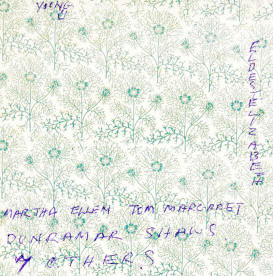 YOUNG
ELDEST ELIZABETH
MARTHA ELLEN TOM MARGRET
DUNRAMAR SHAWS
OTHERS